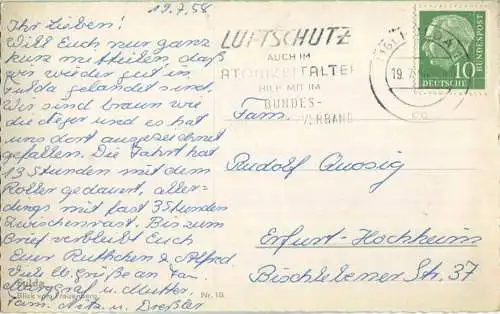 19.7.58
Ihr Lieben!
Will Euch nur ganz
kurz mitteilen, daß
wir wieder gut in
Fulda gelandet sind.
Wir sind braun wie
die Neger und es hat
uns dort ausgezeichnet
gefallen. Die Fahrt hat
13 Stunden mit dem
Roller gedauert, aller-
dings mit fast 3 Stunden
Zwischenrast. Bis zum
Brief verbleibt Euch
Euer Ruthchen & Alfred
Viele Grüße an Fam.
u. Mutter.
Fam. u. Dreßler
Fulda
Blick vom Frauenberg
Nr. 10.
LUFTSCHUTZ
AUCH IM
ATOMZEITALTER
HILF MIT IM
BUNDES-
VERBAND
(16) FULDA
19.7.
cc
10
DEUTSCHE
BUNDESPOST
Fam.
Rudolf Quosig
Erfurt-Hochheim
Bischlebener Str. 37